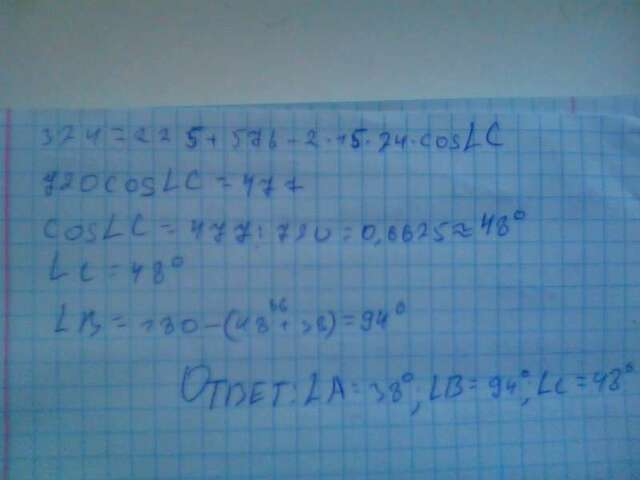 324 = 225 + 576 - 2·15·24·cos∠C
720cos∠C = 477
cos∠C = 477:720 = 0,6625 ≈ 48°
∠C = 48°
∠B = 180 - (48° + 38) = 94°
Ответ: ∠A = 38°; ∠B = 94°; ∠C = 48°